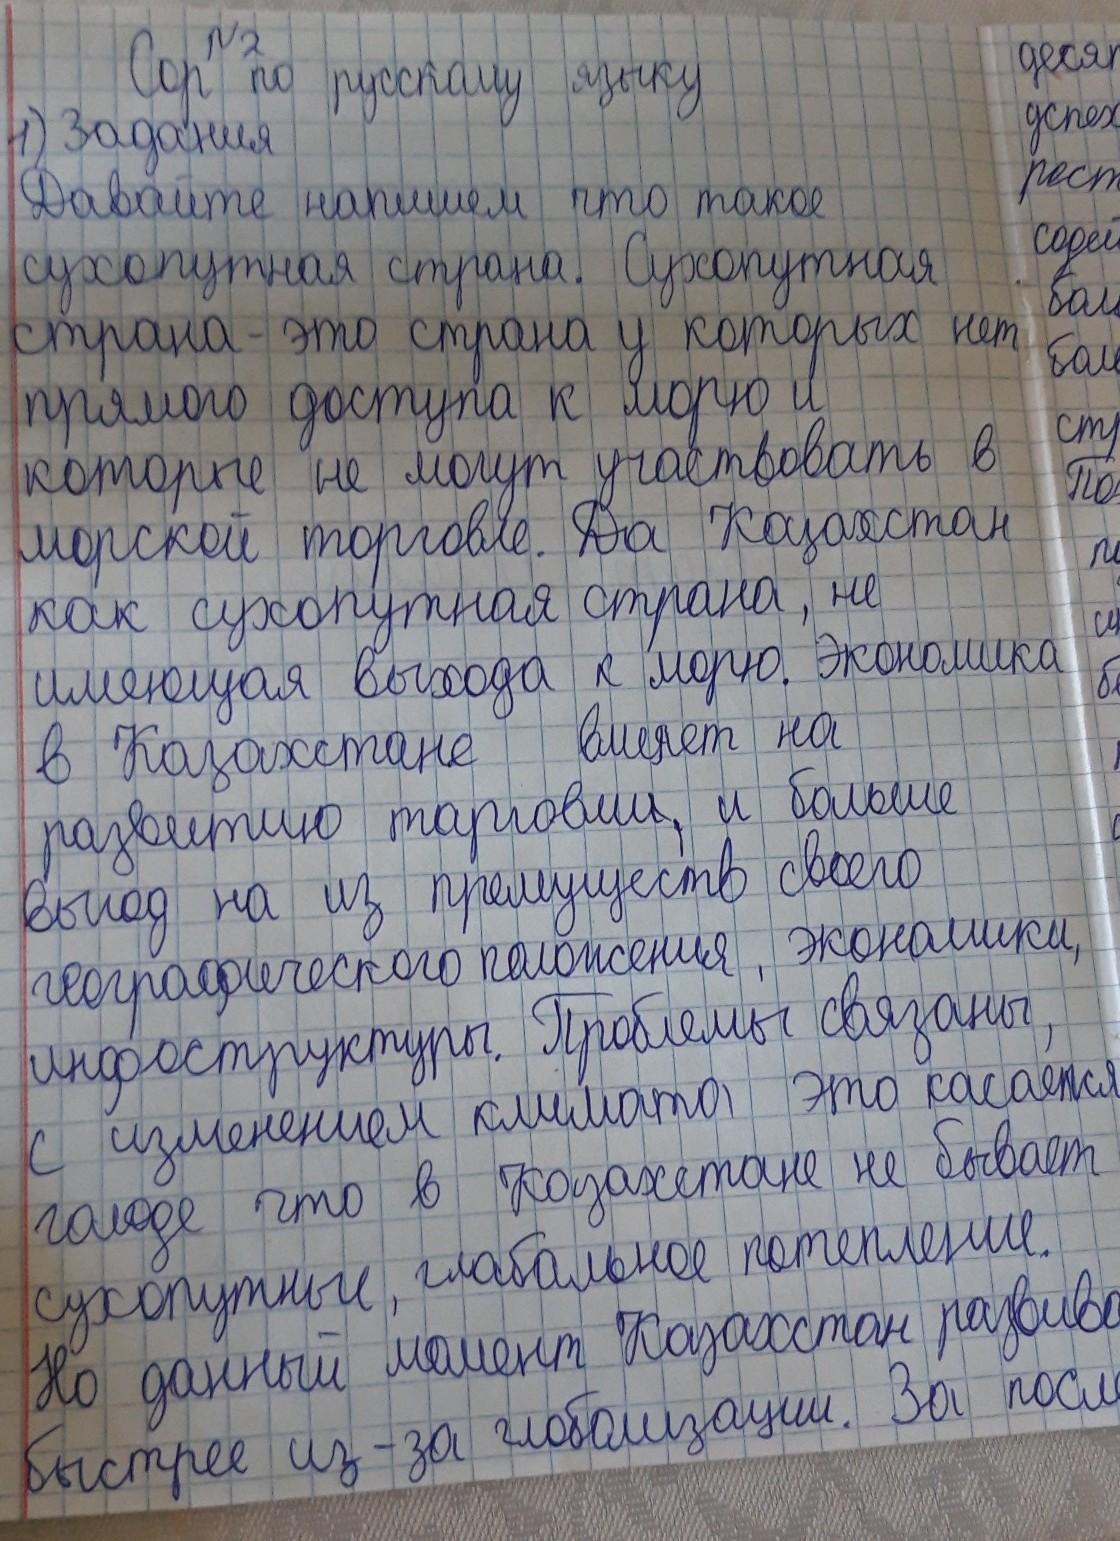 Сор №2 по русскому языку
1) Задания
Давайте напишем что такое
сухопутная страна. Сухопутная
страна - это страна у которых нет
прямого доступа к морю и
которые не могут участвовать в
морской торговле. Да Казахстан
как сухопутная страна, не
имеющая выхода к морю. Экономика
в Казахстане влияет на
развитию торговли, и больше
выгод на из премуществ своего
географического положения, экономики,
инфоструктуры. Проблемы связаны,
с изменением климата это касается
голоде что в Казахстане не бывает
сухопутные, глабальное потепление.
На данный момент Казахстан развива
быстрее из-за глобализации. За посл
десят
успех
рест
содей
бол
бол
стр
По